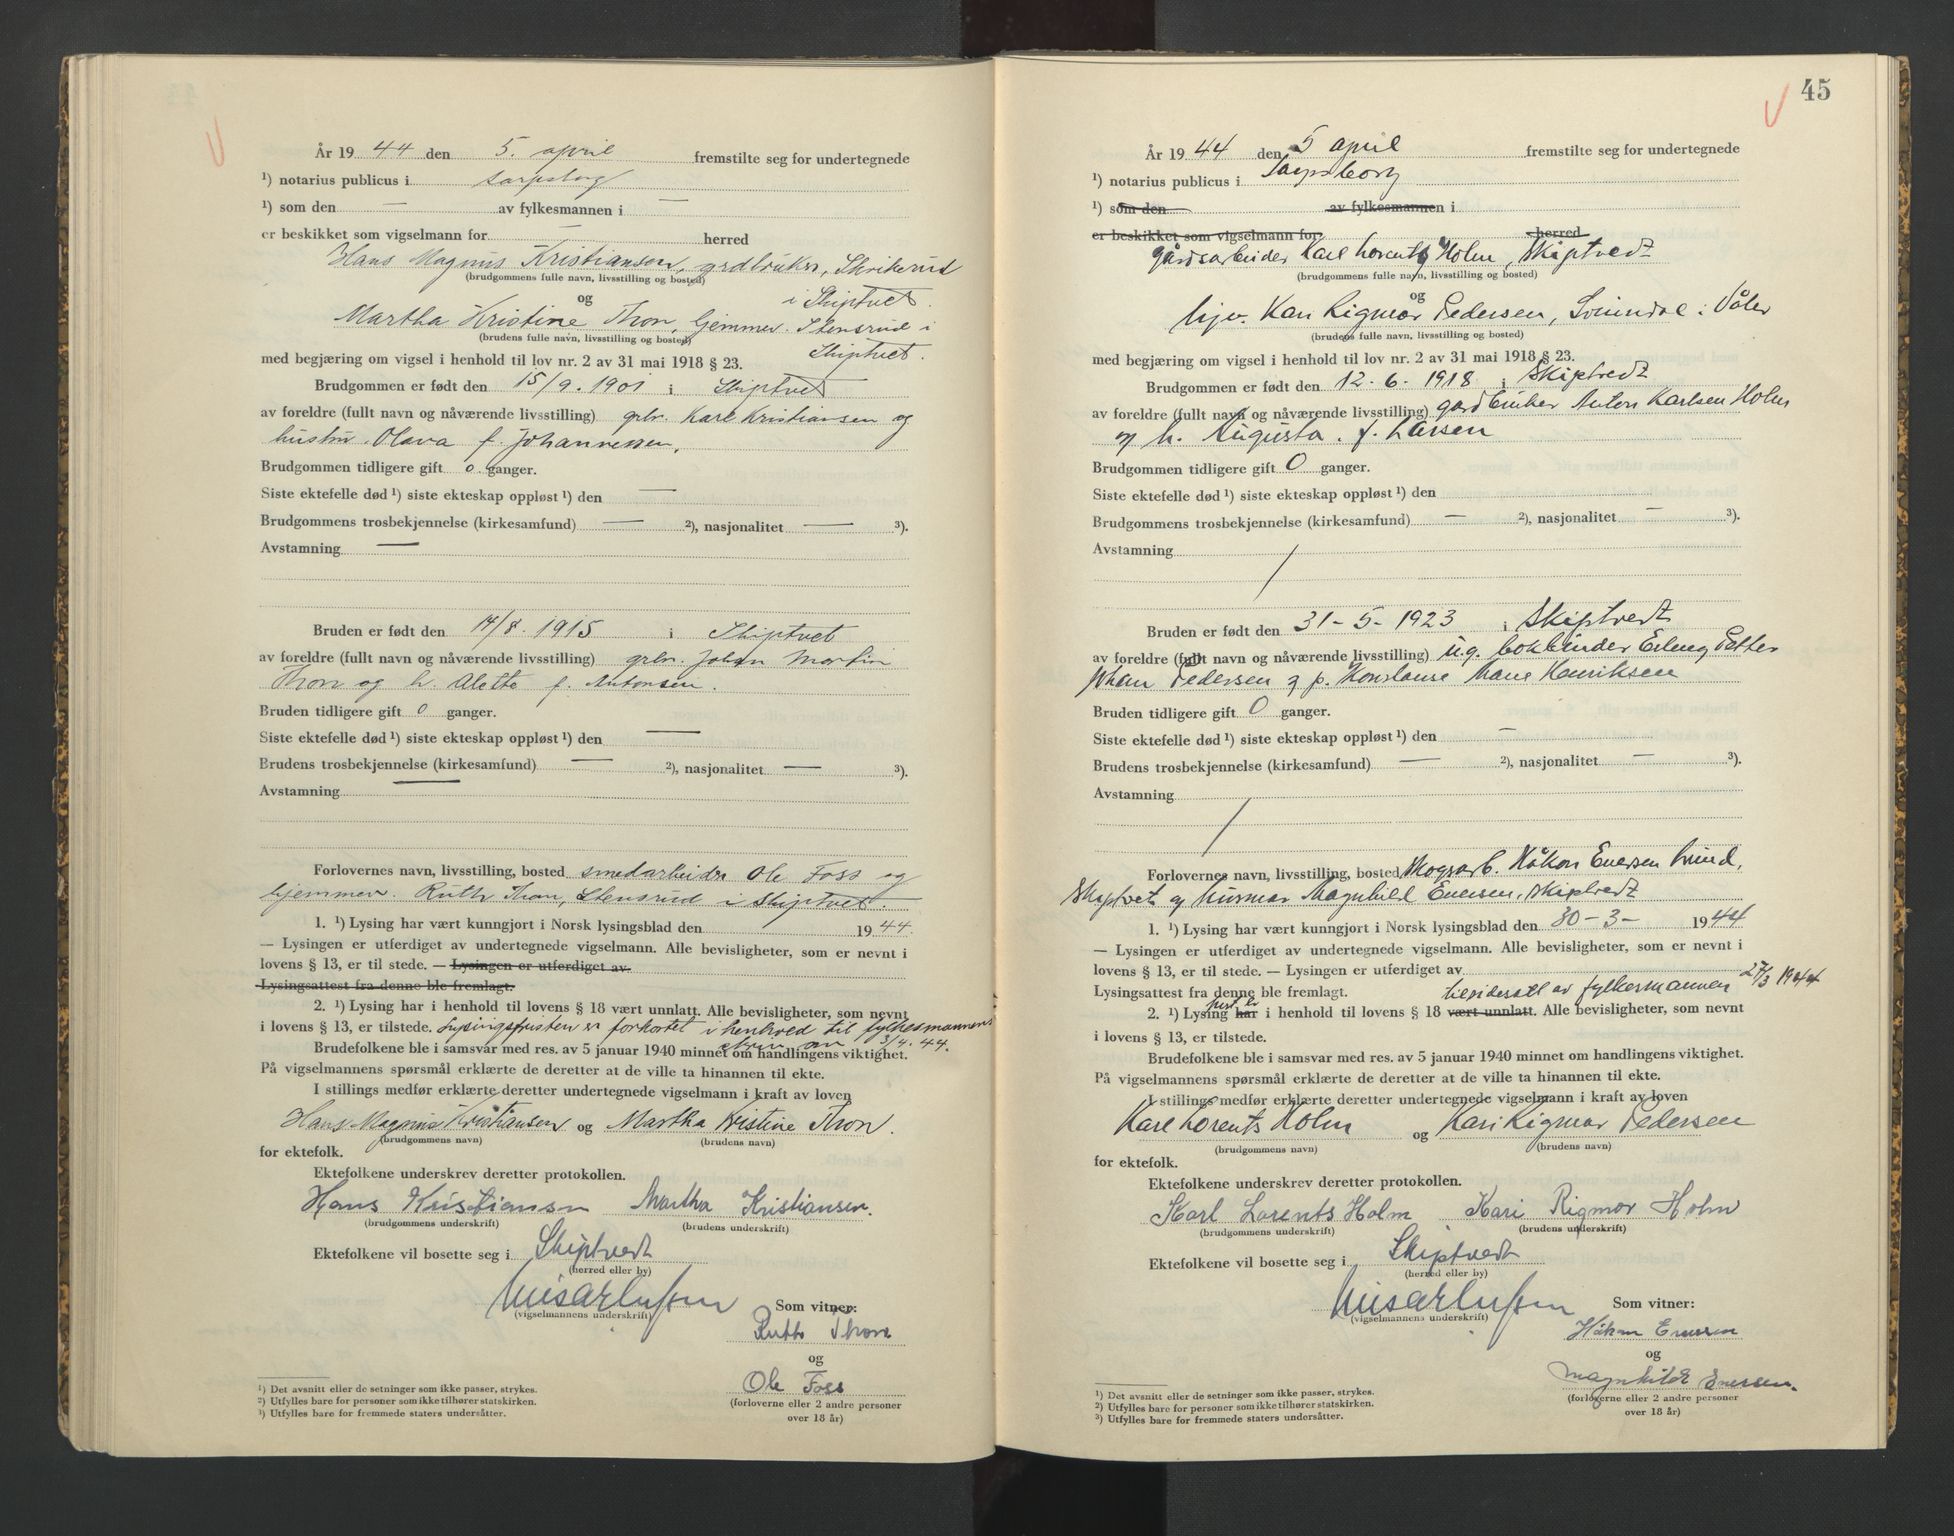 År 1944 den 5. april fremstilte seg for undertegnede
¹) notarius publicus i Sarpsborg
¹) som den — av fylkesmannen i —
er beskikket som vigselmann for — herred
Hans Magnus Kristiansen, grdbruker, Skrikerud
(brudgommens fulle navn, livsstilling og bosted)
i Skiptvet.
og
Martha Kristine Thon, hjemmev. Stensrud i
(brudens fulle navn, livsstilling og bosted)
Skiptvet.
med begjæring om vigsel i henhold til lov nr. 2 av 31 mai 1918 § 23.
Brudgommen er født den 15/9. 1901 i Skiptvet
av foreldre (fullt navn og nåværende livsstilling) grbr. Karl Kristiansen og
hustru Olava f. Johannessen.
Brudgommen tidligere gift 0 ganger.
Siste ektefelle død ¹) siste ekteskap oppløst ¹) den —
Brudgommens trosbekjennelse (kirkesamfund) — ²), nasjonalitet — ³).
Avstamning —
Bruden er født den 14/8. 1915 i Skiptvet
av foreldre (fullt navn og nåværende livsstilling) grbr. Johan Martin
Thon og h. Alette f. Antonsen.
Bruden tidligere gift 0 ganger.
Siste ektefelle død ¹) siste ekteskap oppløst ¹) den —
Brudens trosbekjennelse (kirkesamfund) — ²), nasjonalitet — ³).
Avstamning —
Forlovernes navn, livsstilling, bosted smedarbeider Ole Foss og
hjemmev. Ruth Thon, Stensrud i Skiptvet.
1. ¹) Lysing har vært kunngjort i Norsk lysingsblad den 1944.
— Lysingen er utferdiget av undertegnede vigselmann. Alle bevisligheter, som er nevnt i
lovens § 13, er til stede. — Lysingen er utferdiget av
Lysingsattest fra denne ble fremlagt.
2. ¹) Lysing har i henhold til lovens § 18 vært unnlatt. Alle bevisligheter, som nevnt
i lovens § 13, er tilstede. Lysingsfristen er forkortet i henhold til fylkesmannens
skriv av 3/4. 44.
Brudefolkene ble i samsvar med res. av 5 januar 1940 minnet om handlingens viktighet.
På vigselmannens spørsmål erklærte de deretter at de ville ta hinannen til ekte.
I stillings medfør erklærte deretter undertegnede vigselmann i kraft av loven
Hans Magnus Kristiansen og Martha Kristine Thon.
(brudgommens navn) (brudens navn)
for ektefolk.
Ektefolkene underskrev deretter protokollen.
Hans Kristiansen Martha Kristiansen.
(brudgommens underskrift) (brudens underskrift)
Ektefolkene vil bosette seg i Skiptvedt
(herred eller by)
(vigselmannens underskrift)
Som vitner:
Ruth Thon
og
Ole Foss
(forloverne eller 2 andre personer
over 18 år)
¹) Det avsnitt eller de setninger som ikke passer, strykes.
²) Utfylles bare for personer som ikke tilhører statskirken.
³) Utfylles bare for fremmede staters undersåtter.
45
År 1944 den 5 april fremstilte seg for undertegnede
¹) notarius publicus i Sarpsborg
¹) som den av fylkesmannen i
er beskikket som vigselmann for herred
gårdsarbeider Karl Lorents Holm, Skiptvedt
(brudgommens fulle navn, livsstilling og bosted)
og
hjv. Kari Rigmor Pedersen, Svinndal i Våler
(brudens fulle navn, livsstilling og bosted)
med begjæring om vigsel i henhold til lov nr. 2 av 31 mai 1918 § 23.
Brudgommen er født den 12. 6. 1918 i Skiptvedt
av foreldre (fullt navn og nåværende livsstilling) gårdbruker Anton Karlsen Holm
og h. Augusta. f. Larsen
Brudgommen tidligere gift 0 ganger.
Siste ektefelle død ¹) siste ekteskap oppløst ¹) den —
Brudgommens trosbekjennelse (kirkesamfund) — ²), nasjonalitet — ³).
Avstamning
Bruden er født den 31-5-1923 i Skiptvedt
av foreldre (fullt navn og nåværende livsstilling) u.g. bokbinder Erling Petter
Johan Pedersen og p. Konstanse Marie Henriksen
Bruden tidligere gift 0 ganger.
Siste ektefelle død ¹) siste ekteskap oppløst ¹) den —
Brudens trosbekjennelse (kirkesamfund) — ²), nasjonalitet — ³).
Avstamning
Forlovernes navn, livsstilling, bosted Skogsarb. Håkon Enersen Lund,
Skiptvet og husmor Magnhild Enersen, Skiptvedt
1. ¹) Lysing har vært kunngjort i Norsk lysingsblad den 30-3- 1944
— Lysingen er utferdiget av undertegnede vigselmann. Alle bevisligheter, som er nevnt i
lovens § 13, er til stede. — Lysingen er utferdiget av
Lysingsattest fra denne ble fremlagt. tilsidesatt av fylkesmannen 27/3 1944
2. ¹) Lysing har i henhold til lovens § 18 vært unnlatt. Alle bevisligheter, som nevnt
i lovens § 13, er tilstede.
Brudefolkene ble i samsvar med res. av 5 januar 1940 minnet om handlingens viktighet.
På vigselmannens spørsmål erklærte de deretter at de ville ta hinannen til ekte.
I stillings medfør erklærte deretter undertegnede vigselmann i kraft av loven
Karl Lorents Holm og Kari Rigmor Pedersen
(brudgommens navn) (brudens navn)
for ektefolk.
Ektefolkene underskrev deretter protokollen.
Karl Lorents Holm Kari Rigmor Holm
(brudgommens underskrift) (brudens underskrift)
Ektefolkene vil bosette seg i Skiptvedt
(herred eller by)
(vigselmannens underskrift)
Som vitner:
Håkon Enersen
og
Magnhild Enersen.
(forloverne eller 2 andre personer
over 18 år)
¹) Det avsnitt eller de setninger som ikke passer, strykes.
²) Utfylles bare for personer som ikke tilhører statskirken.
³) Utfylles bare for fremmede staters undersåtter.